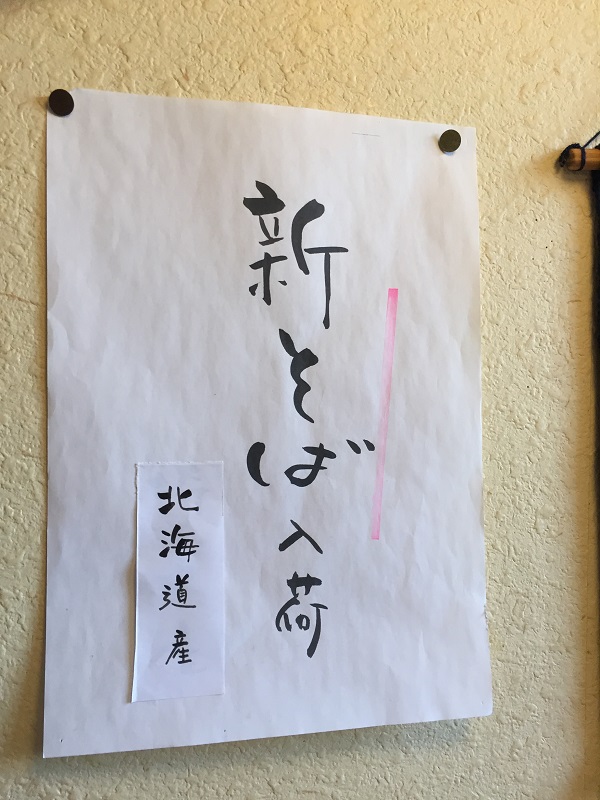 新そば入荷
北海道産